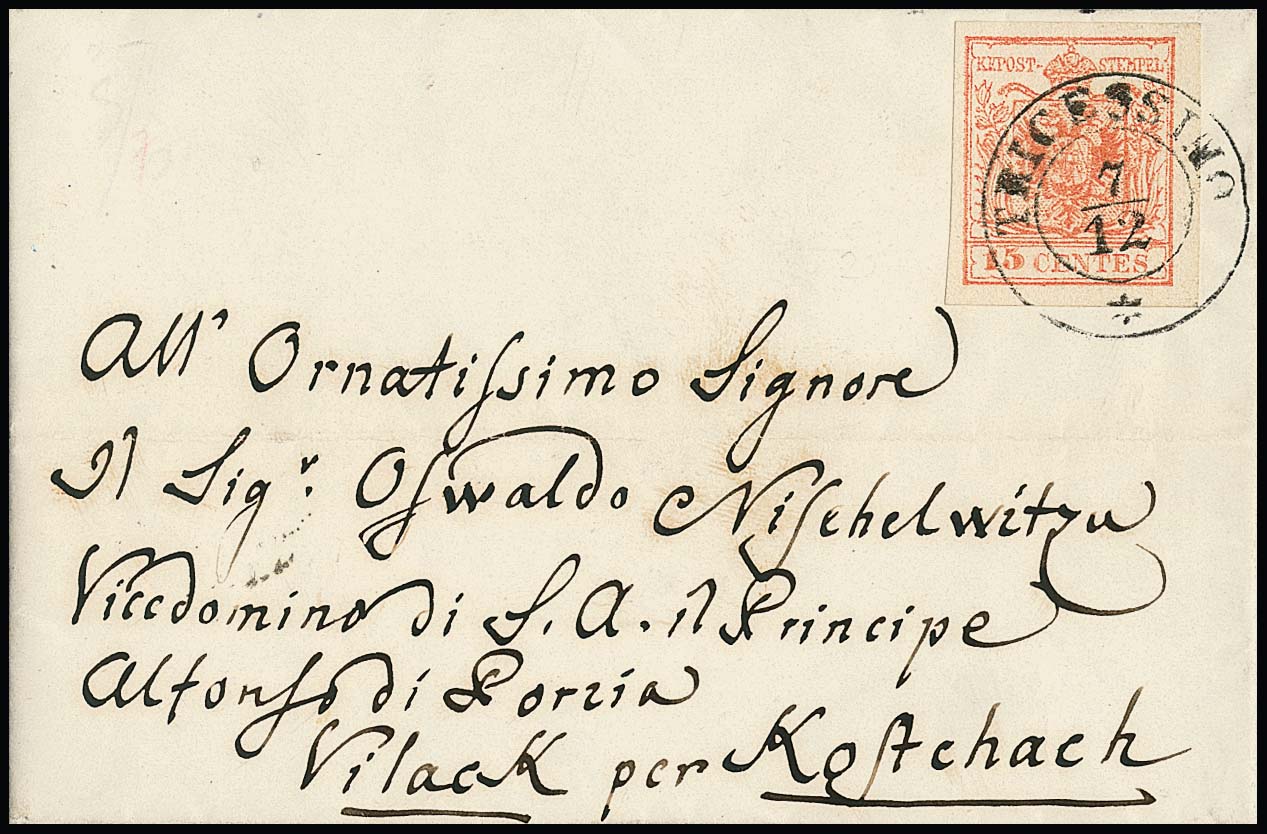 K.K.POST-STEMPEL
TRICESSIMO
7
12
15 CENTES
All' Ornatissimo Signore
Il Sigr. Oswaldo Nischelwitzu
Vicedomino di S. A. il Principe
Alfonso di Porzia
Vilack per Kostchach